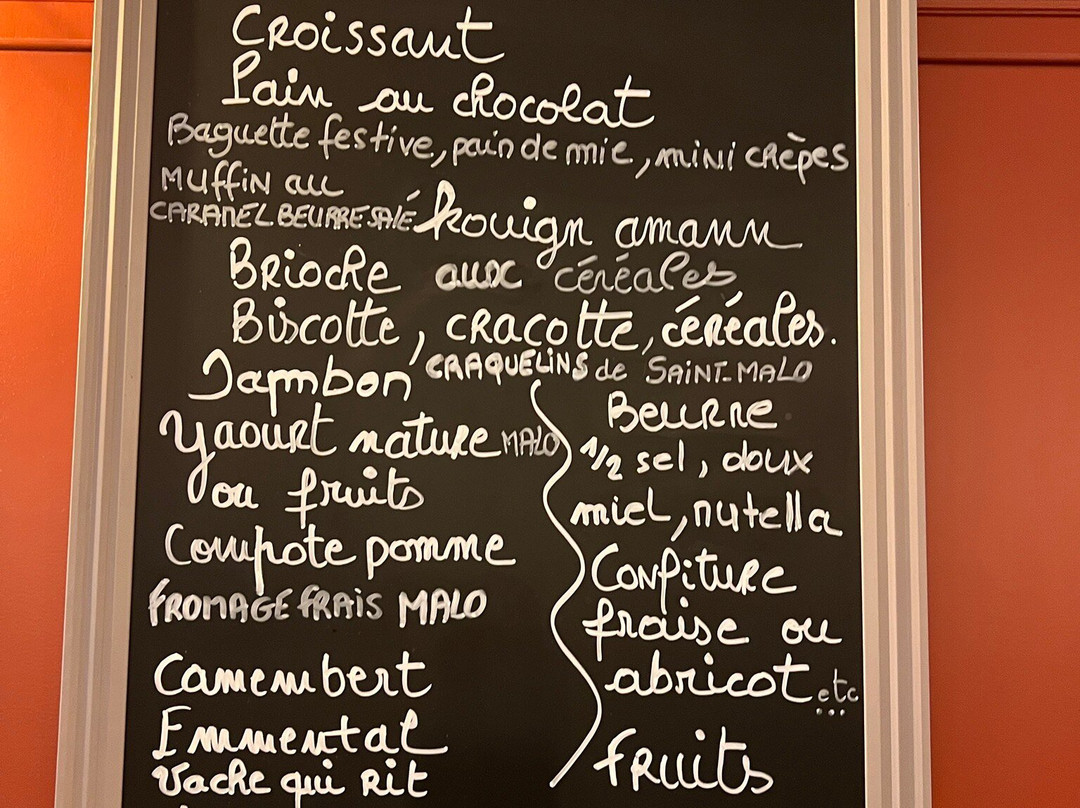 Croissant
Pain au chocolat
Baguette festive, pain de mie, mini crêpes
Muffin au
CARAMEL BEURRE SALÉ
kouign amann
Brioche aux céréales
Biscotte, cracotte, céréales.
CRAQUELINS de SAINT-MALO
Jambon
Yaourt nature MALO
ou fruits
Compote pomme
FROMAGE FRAIS MALO
Camembert
Emmental
Vache qui Rit
Beurre
1/2 sel, doux
miel, nutella
Confiture
fraise ou
abricot etc...
Fruits